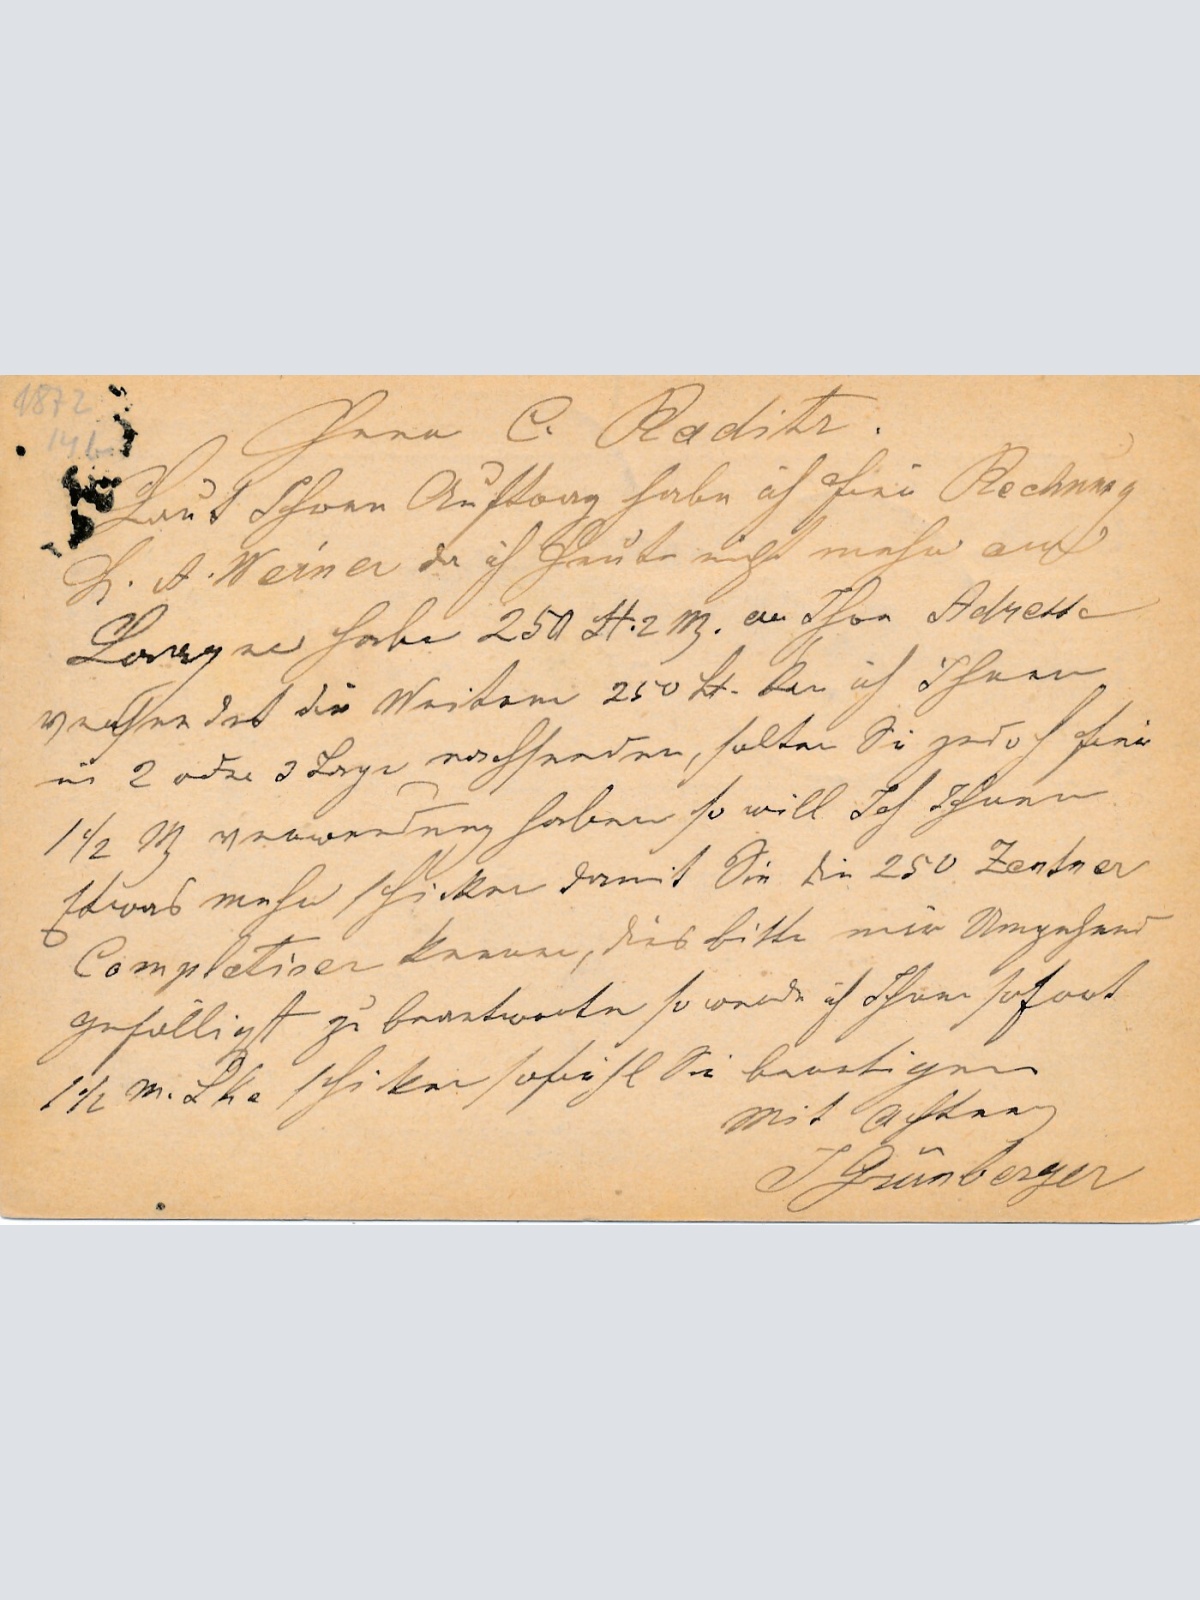 1872
Herrn C. Raditz.
Laut Ihren Auftrag habe ich für Rechnung
H. A. Werner da ich Heute nicht mehr auf
Lager habe 250 2 M. an Ihre Adresse
versendet die Weitern 250 ich Ihnen
in 2 oder 3 Tage nachsenden, solten Sie jedoch für
1 1/2 M verwendung haben so will Ich Ihnen
Etwas mehr schicken damit Sie die 250 Zentner
Completiren können, dies bitte mir Umgehend
gefälligst zu beantworten so werde ich Ihnen sofort
1 1/2 m. schiken Sie benötigen
Mit Achtung
J Grünberger